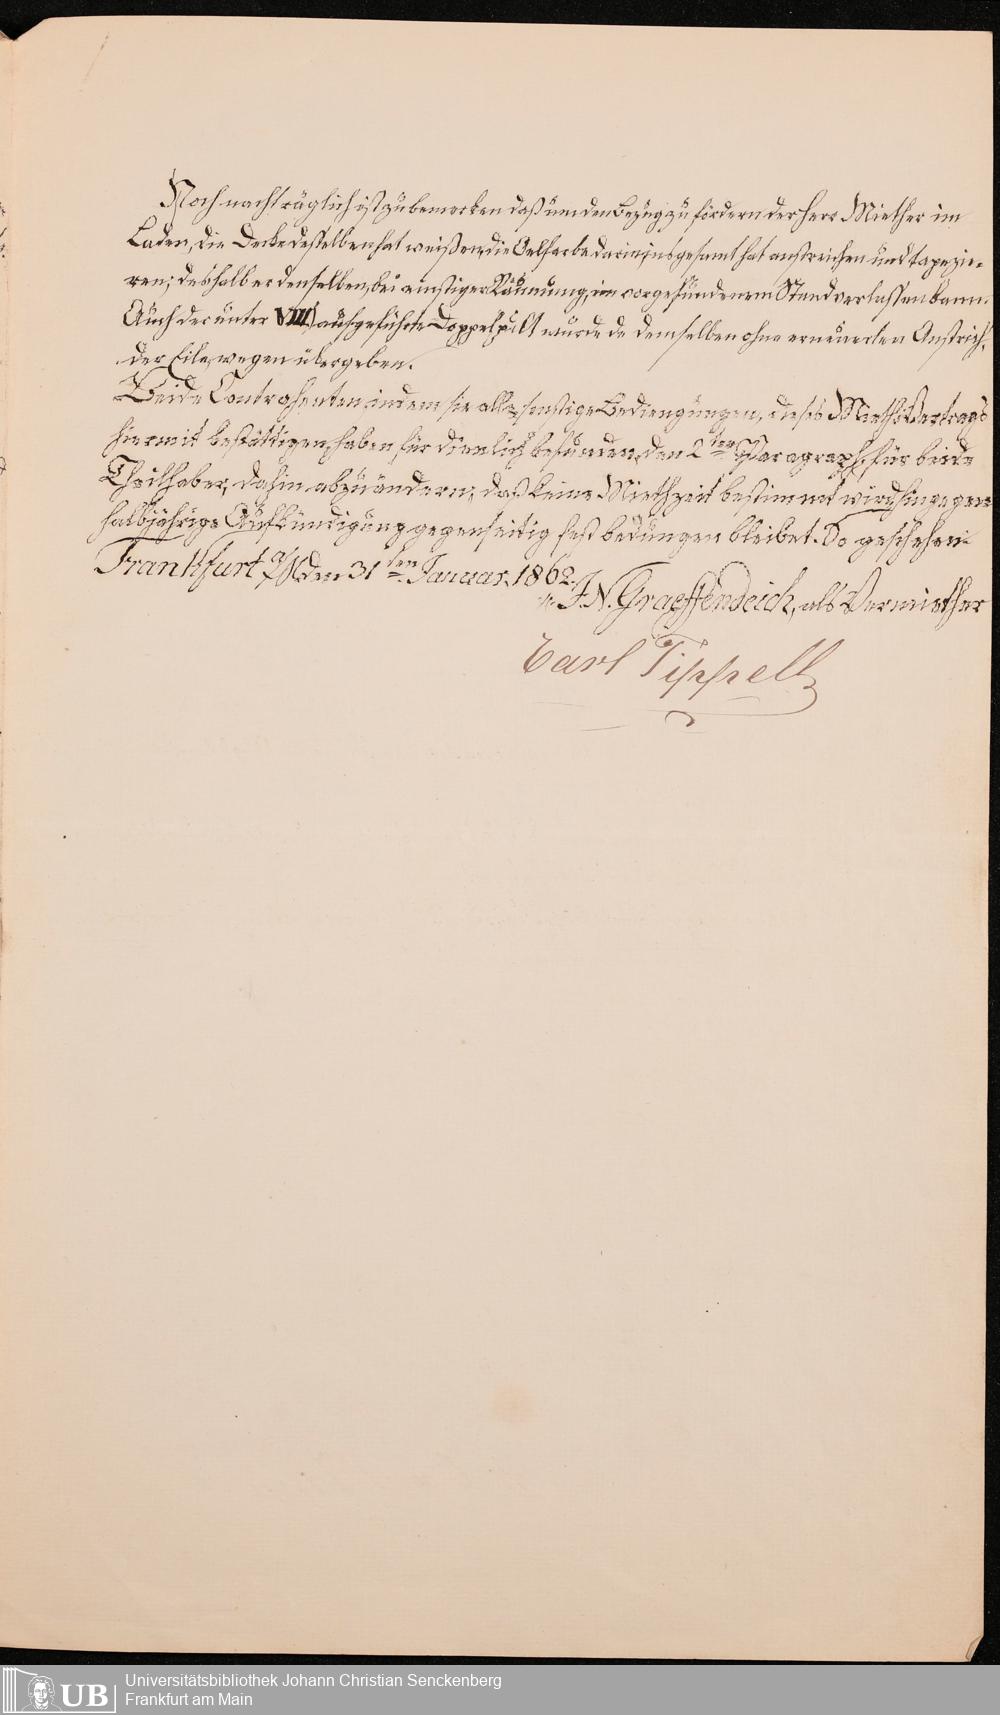 Noch nachträglich ist zu bemerken daß um den Bezug zu fördern der Herr Miether im
Laden, die Decke desselben hat weißen, die Oelfarbe darin, insgesamt hat anstreichen und tapezie-
ren; deshalb er denselben, bei einstiger Räumung, im vorgefundenem Stand verlassen kann.
Auch der unter VIII) aufgeführte Doppelpult wurde demselben ohne erneuerten Anstrich,
der Eile, wegen übergeben.
Beide Contrahenten, indem sie alle, sonstige Bediengungen, dieses Miethsvertrags
hiermit bestättigen, haben für dienlich befunden, den 2ten Paragraph, für beide
Theilhaber, dahin abzuändern; daß keine Miethzeit bestimmt wird, hingegen
halbjährige Aufkündigung gegenseitig fest bedungen bleibet. So geschehen
Frankfurt a/M den 31ten Januar, 1862.
J. N. Graeffendeich, als Vermiether
Carl Tippell
Universitätsbibliothek Johann Christian Senckenberg
Frankfurt am Main
UB